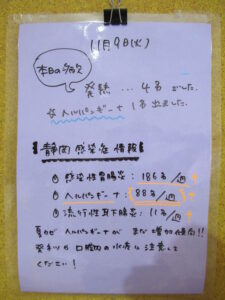 11月9日(火)
本日の病欠
発熱 … 4名 でした。
☆ ヘルパンギーナ 1名 出ました。
静岡 感染症 情報
① 感染性胃腸炎 : 186名/週 ↑
② ヘルパンギーナ : 88名/週 ↑
③ 流行性耳下腺炎 : 11名/週 ↑
夏かぜ ヘルパンギーナが まだ 増加傾向!!
発熱や口腔内の水疱に注意して
ください!